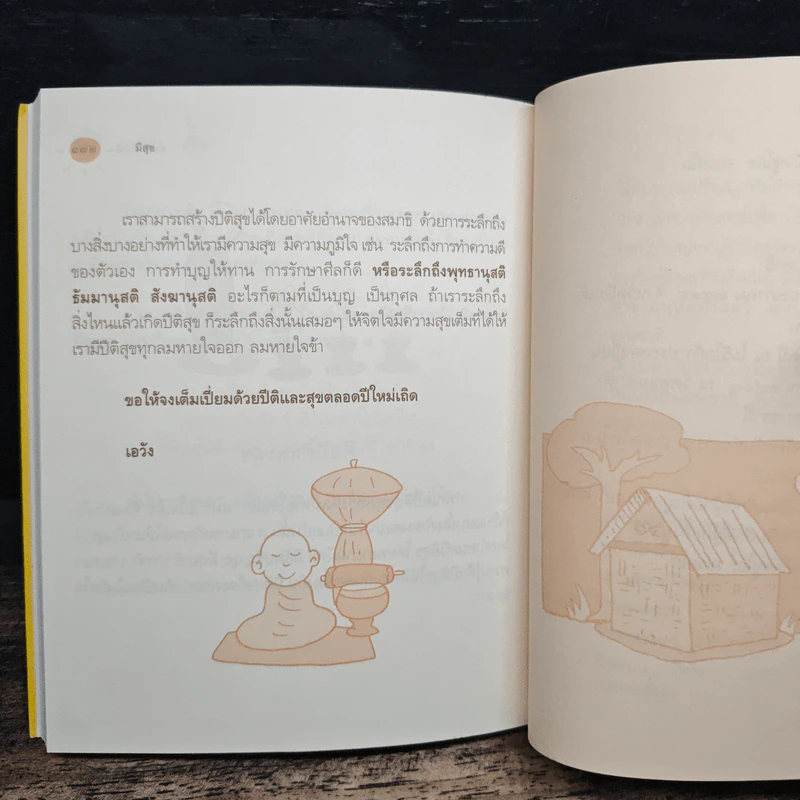 มีสุข
เราสามารถสร้างปีติสุขได้โดยอาศัยอำนาจของสมาธิ ด้วยการระลึกถึง
บางสิ่งบางอย่างที่ทำให้เรามีความสุข มีความภูมิใจ เช่น ระลึกถึงการทำความดี
ของตัวเอง การทำบุญให้ทาน การรักษาศีลก็ดี หรือระลึกถึงพุทธานุสติ
ธัมมานุสติ สังฆานุสติ อะไรก็ตามที่เป็นบุญ เป็นกุศล ถ้าเราระลึกถึง
สิ่งไหนแล้วเกิดปีติสุข ก็ระลึกถึงสิ่งนั้นเสมอๆ ให้จิตใจมีความสุขเต็มที่ได้ให้
เรามีปีติสุขทุกลมหายใจออก ลมหายใจเข้า
ขอให้จงเต็มเปี่ยมด้วยปีติและสุขตลอดปีใหม่เถิด
เอวัง